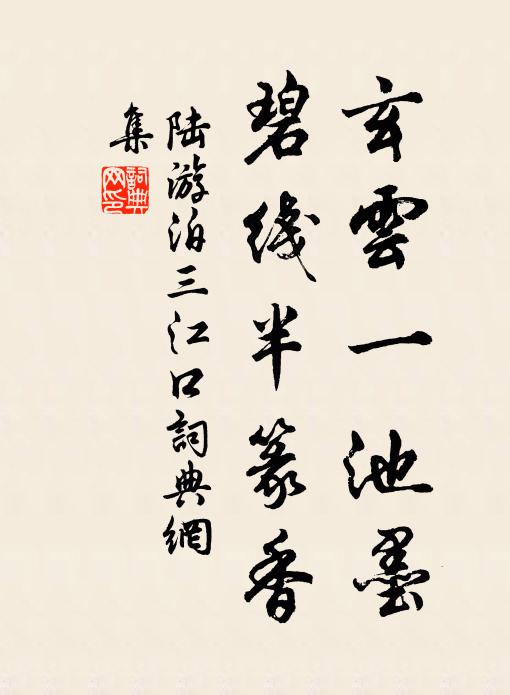 玄雲一池墨
碧线半篆香
陆游泊三江口詞典網
集
詞典
网印